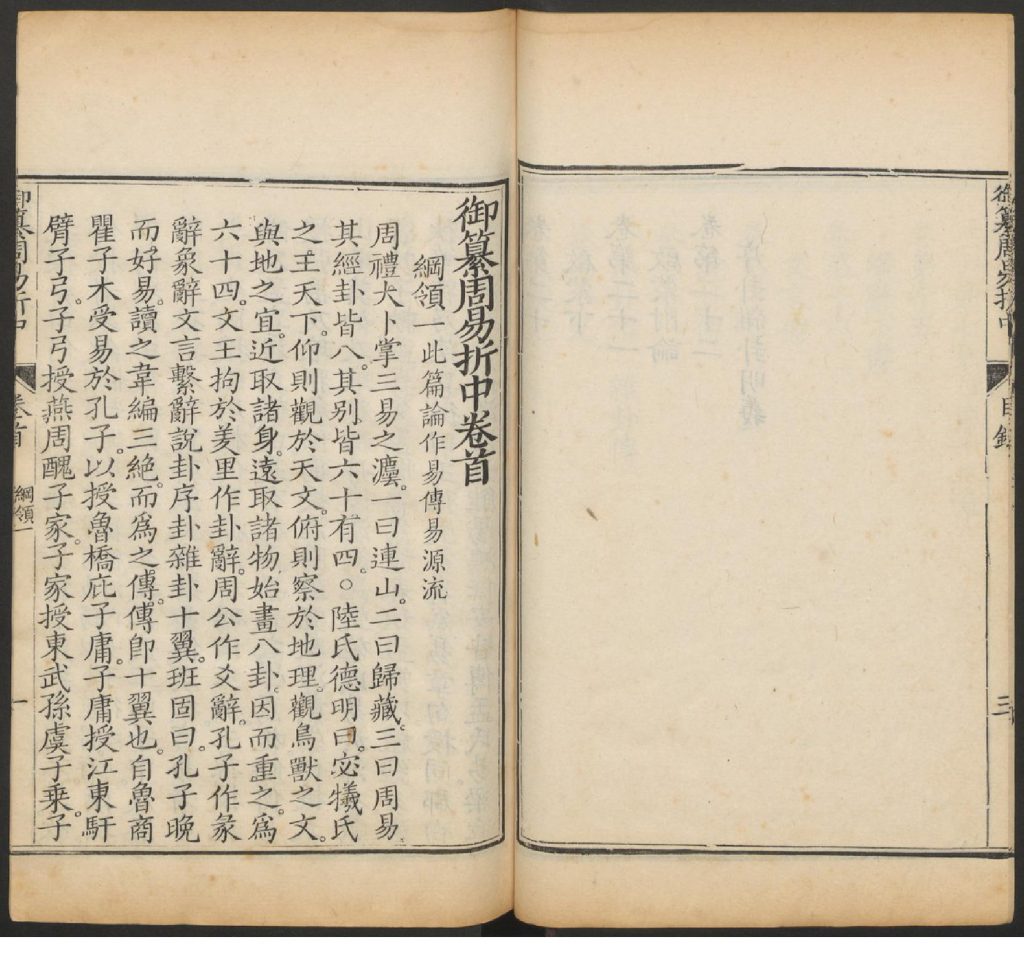 御纂周易折中
目錄
三
御纂周易折中卷首
綱領一此篇論作易傳易源流
周禮大卜掌三易之灋一曰連山二曰歸藏三曰周易
其經卦皆八其別皆六十有四○陸氏德明曰宓犧氏
之王天下仰則觀於天文俯則察於地理觀鳥獸之文
與地之宜近取諸身遠取諸物始畫八卦因而重之為
六十四文王拘於羑里作卦辭周公作爻辭孔子作彖
辭象辭文言繫辭說卦序卦雜卦十翼班固曰孔子晚
而好易讀之韋編三絕而為之傳傳卽十翼也自魯商
瞿子木受易於孔子以授魯橋庇子庸子庸授江東馯
臂子弓子弓授燕周醜子家子家授東武孫虞子乘子
御纂周易折中
卷首
綱領一
一